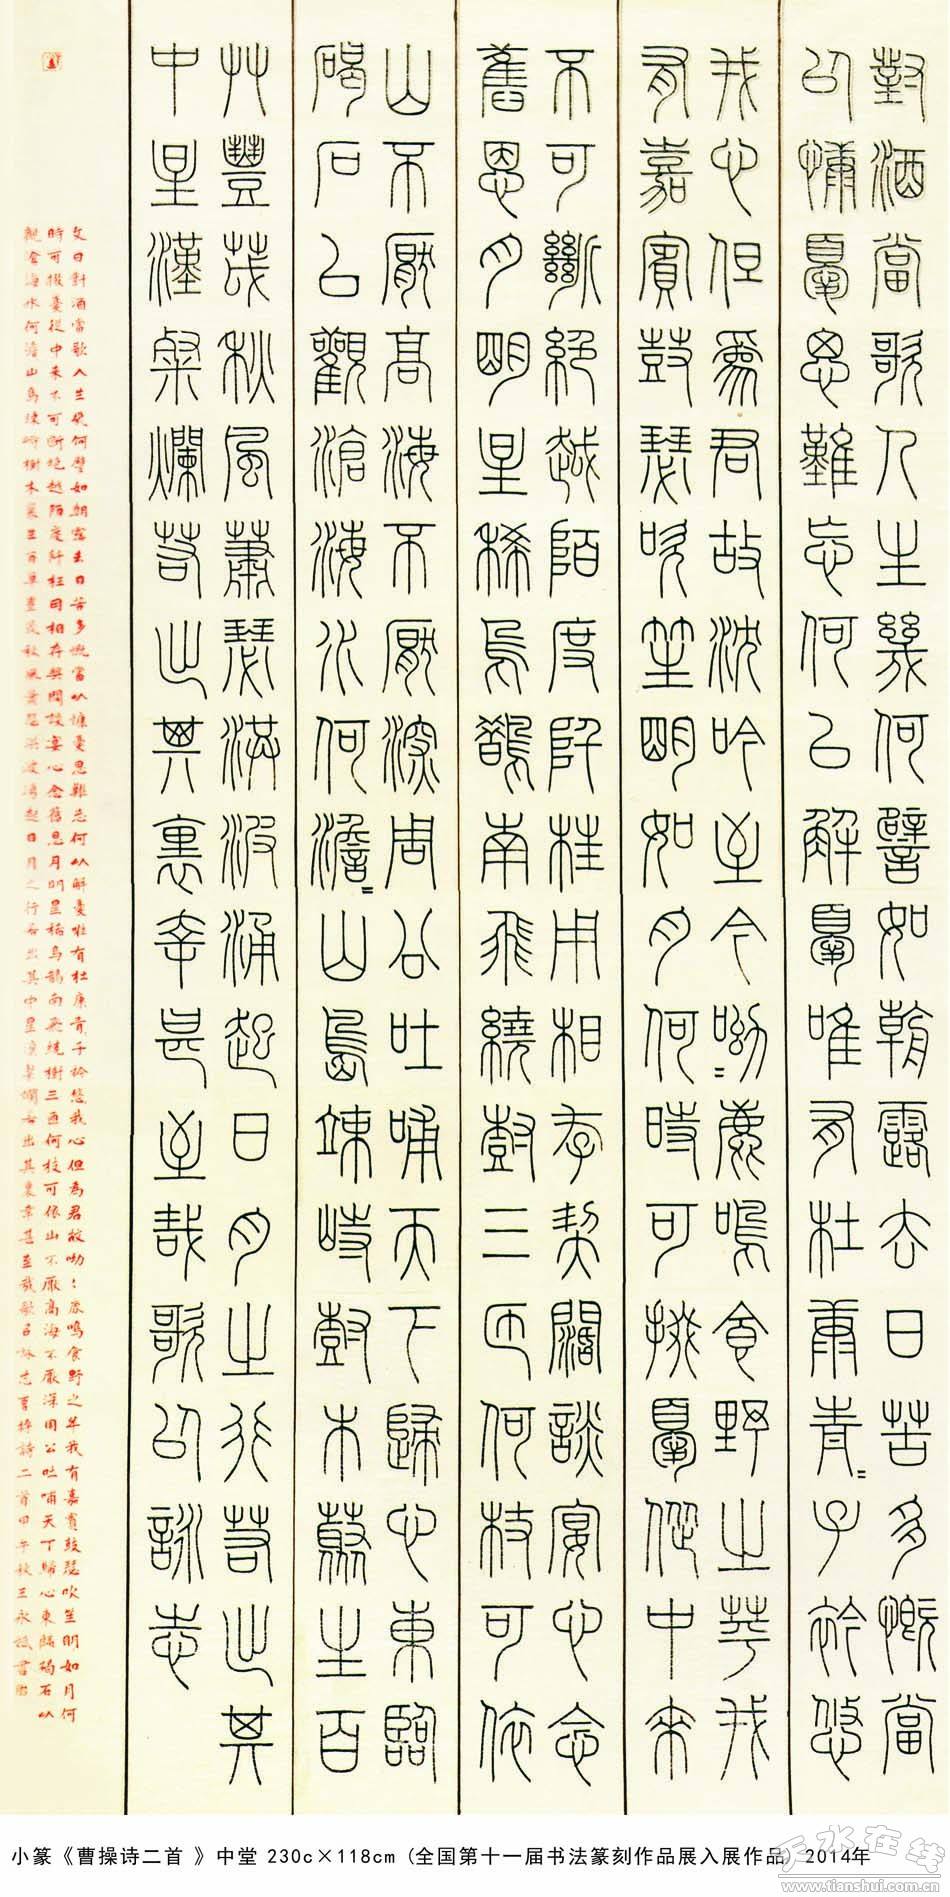 對酒當歌人生幾何譬如朝露去日苦多慨當
以慷憂思難忘何以解憂唯有杜康青=子衿悠
我心但為君故沈吟至今呦=鹿鳴食野之苹我
有嘉賓鼓瑟吹笙明如月何時可掇憂從中來
不可斷絕越陌度阡枉用相存契闊談宴心念
舊恩月明星稀烏鵲南飛繞樹三匝何枝可依
山不厭高海不厭深周公吐哺天下歸心東臨
碣石以觀滄海水何澹=山島竦峙樹木叢生百
艸豐茂秋風蕭瑟洪波涌起日月之行若出其
中星漢粲爛若出其裏幸甚至哉歌以詠志
文曰對酒當歌人生幾何譬如朝露去日苦多慨當以慷憂思難忘何以解憂唯有杜康青子衿悠我心但為君故呦：鹿鳴食野之苹我有嘉賓鼓瑟吹笙明如月何
時可掇憂從中來不可斷絕越陌度阡枉用相存契闊談宴心念舊恩月明星稀烏鵲南飛繞樹三匝何枝可依山不厭高海不厭深周公吐哺天下歸心東臨碣石以
觀滄海水何澹山島竦峙樹木叢生百草豐茂秋風蕭瑟洪波涌起日月之行若出其中星漢粲爛若出其裏幸甚至哉歌以詠志曹操詩二首甲午秋王永
小篆《曹操诗二首 》中堂 230c×118cm (全国第十一届书法篆刻作品展入展作品) 2014年
天水在线
www.tianshui.com.cn